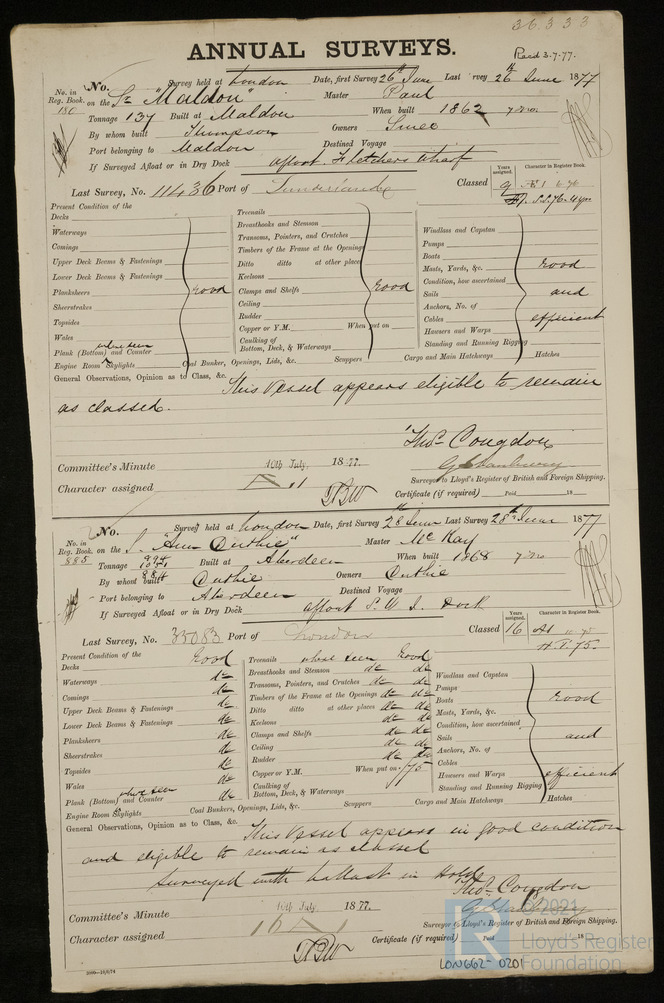 36333
ANNUAL SURVEYS.
Recd 3.7.77.
No. Survey held at London Date, first Survey 26th June Last Survey 26th June 1877
No. in Reg. Book. 180 on the Sr "Maldon" Master Paul
Tonnage 137 Built at Maldon When built 1862 7 mo.
By whom built Thompson Owners Smee
Port belonging to Maldon Destined Voyage
If Surveyed Afloat or in Dry Dock afloat Fletchers Wharf
Years assigned. Character in Register Book.
Last Survey, No. 11436 Port of Sunderland Classed 9 A1 6.76
S.S. 76-4yrs
Present Condition of the
Decks
Waterways
Comings
Upper Deck Beams & Fastenings
Lower Deck Beams & Fastenings
Planksheers Good
Sheerstrakes
Topsides
Wales
where seen
Plank (Bottom) and Counter
Engine Room Skylights
Treenails
Breasthooks and Stemson
Transoms, Pointers, and Crutches
Timbers of the Frame at the Openings
Ditto ditto at other places
Keelsons
Clamps and Shelfs Good
Ceiling
Rudder
Copper or Y.M. When put on
Caulking of Bottom, Deck, & Waterways
Coal Bunker, Openings, Lids, &c. Scuppers Cargo and Main Hatchways Hatches
Windlass and Capstan
Pumps
Boats
Masts, Yards, &c. Good
Condition, how ascertained
Sails and
Anchors, No. of
Cables efficient
Hawsers and Warps
Standing and Running Rigging
General Observations, Opinion as to Class, &c. This Vessel appears eligible to remain
as classed.
Thos. Congdon
Committee's Minute 10th July 1877.
Surveyor to Lloyd's Register of British and Foreign Shipping.
Character assigned A.1
Certificate (if required) Paid 18
No. Survey held at London Date, first Survey 28th June Last Survey 28th June 1877
No. in Reg. Book. 885 on the S. "Ann Duthie" Master McKay
Tonnage 994 Built at Aberdeen When built 1868 7 mo
By whom built Duthie Owners Duthie
Port belonging to Aberdeen Destined Voyage
If Surveyed Afloat or in Dry Dock afloat S. W. I. Dock
Years assigned. Character in Register Book.
Last Survey, No. 35083 Port of London Classed 16 A1
H.T. 75.
Present Condition of the
Decks Good
Waterways do
Comings do
Upper Deck Beams & Fastenings do
Lower Deck Beams & Fastenings do
Planksheers do
Sheerstrakes do
Topsides do
Wales do
where seen
Plank (Bottom) and Counter do
Engine Room Skylights
Treenails where seen Good
Breasthooks and Stemson do do
Transoms, Pointers, and Crutches do do
Timbers of the Frame at the Openings do do
Ditto ditto at other places do do
Keelsons do do
Clamps and Shelfs do do
Ceiling do do
Rudder do do
Copper or Y.M. When put on /75
Caulking of Bottom, Deck, & Waterways
Coal Bunkers, Openings, Lids, &c. Scuppers Cargo and Main Hatchways Hatches
Windlass and Capstan
Pumps
Boats Good
Masts, Yards, &c.
Condition, how ascertained
Sails and
Anchors, No. of
Cables
Hawsers and Warps efficient
Standing and Running Rigging
General Observations, Opinion as to Class, &c. This Vessel appears in good condition
and eligible to remain as classed
Surveyed with ballast in Hold.
Thos. Congdon
Committee's Minute 10th July 1877.
Surveyor to Lloyd's Register of British and Foreign Shipping.
Character assigned 16 A1
Certificate (if required) Paid 18
© 2021
Lloyd's Register
Foundation
LON662-0201